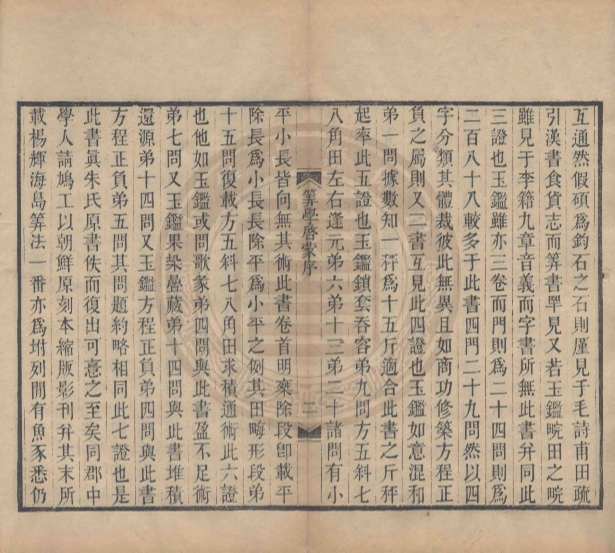 互通然假碩爲鈞石之石則僅見于毛詩甫田疏
引漢書食貨志而筭書罕見又若玉鑑畹田之畹
雖見于李籍九章音義而字書所無此書幷同此
三證也玉鑑雖亦三卷而門則爲二十四問則爲
二百八十八較多于此書四門二十九問然以四
字分類其體裁彼此無異且如商功修築方程正
負之屬則又二書互見此四證也玉鑑如意混和
弟一問據數知一秤爲十五斤適合此書之斤秤
起率此五證也玉鑑鎖套吞容弟九問方五斜七
八角田左右逢元弟六弟十三弟二十諸問有小
筭學啓蒙序
二
平小長皆向無其術此書卷首明乘除段卽載平
除長爲小長長除平爲小平之例其田畮形段弟
十五問復載方五斜七八角田求積通術此六證
也他如玉鑑或問歌彖弟四問與此書盈不足術
弟七問又玉鑑果垜曡藏弟十四問與此書堆積
還源弟十四問又玉鑑方程正負弟四問與此書
方程正負弟五問其問題約略相同此七證也是
此書眞朱氏原書佚而復出可意之至矣同郡中
學人請鳩工以朝鮮原刻本縮版影刊幷其末所
載楊輝海島筭法一番亦爲坿列閒有魚豕悉仍